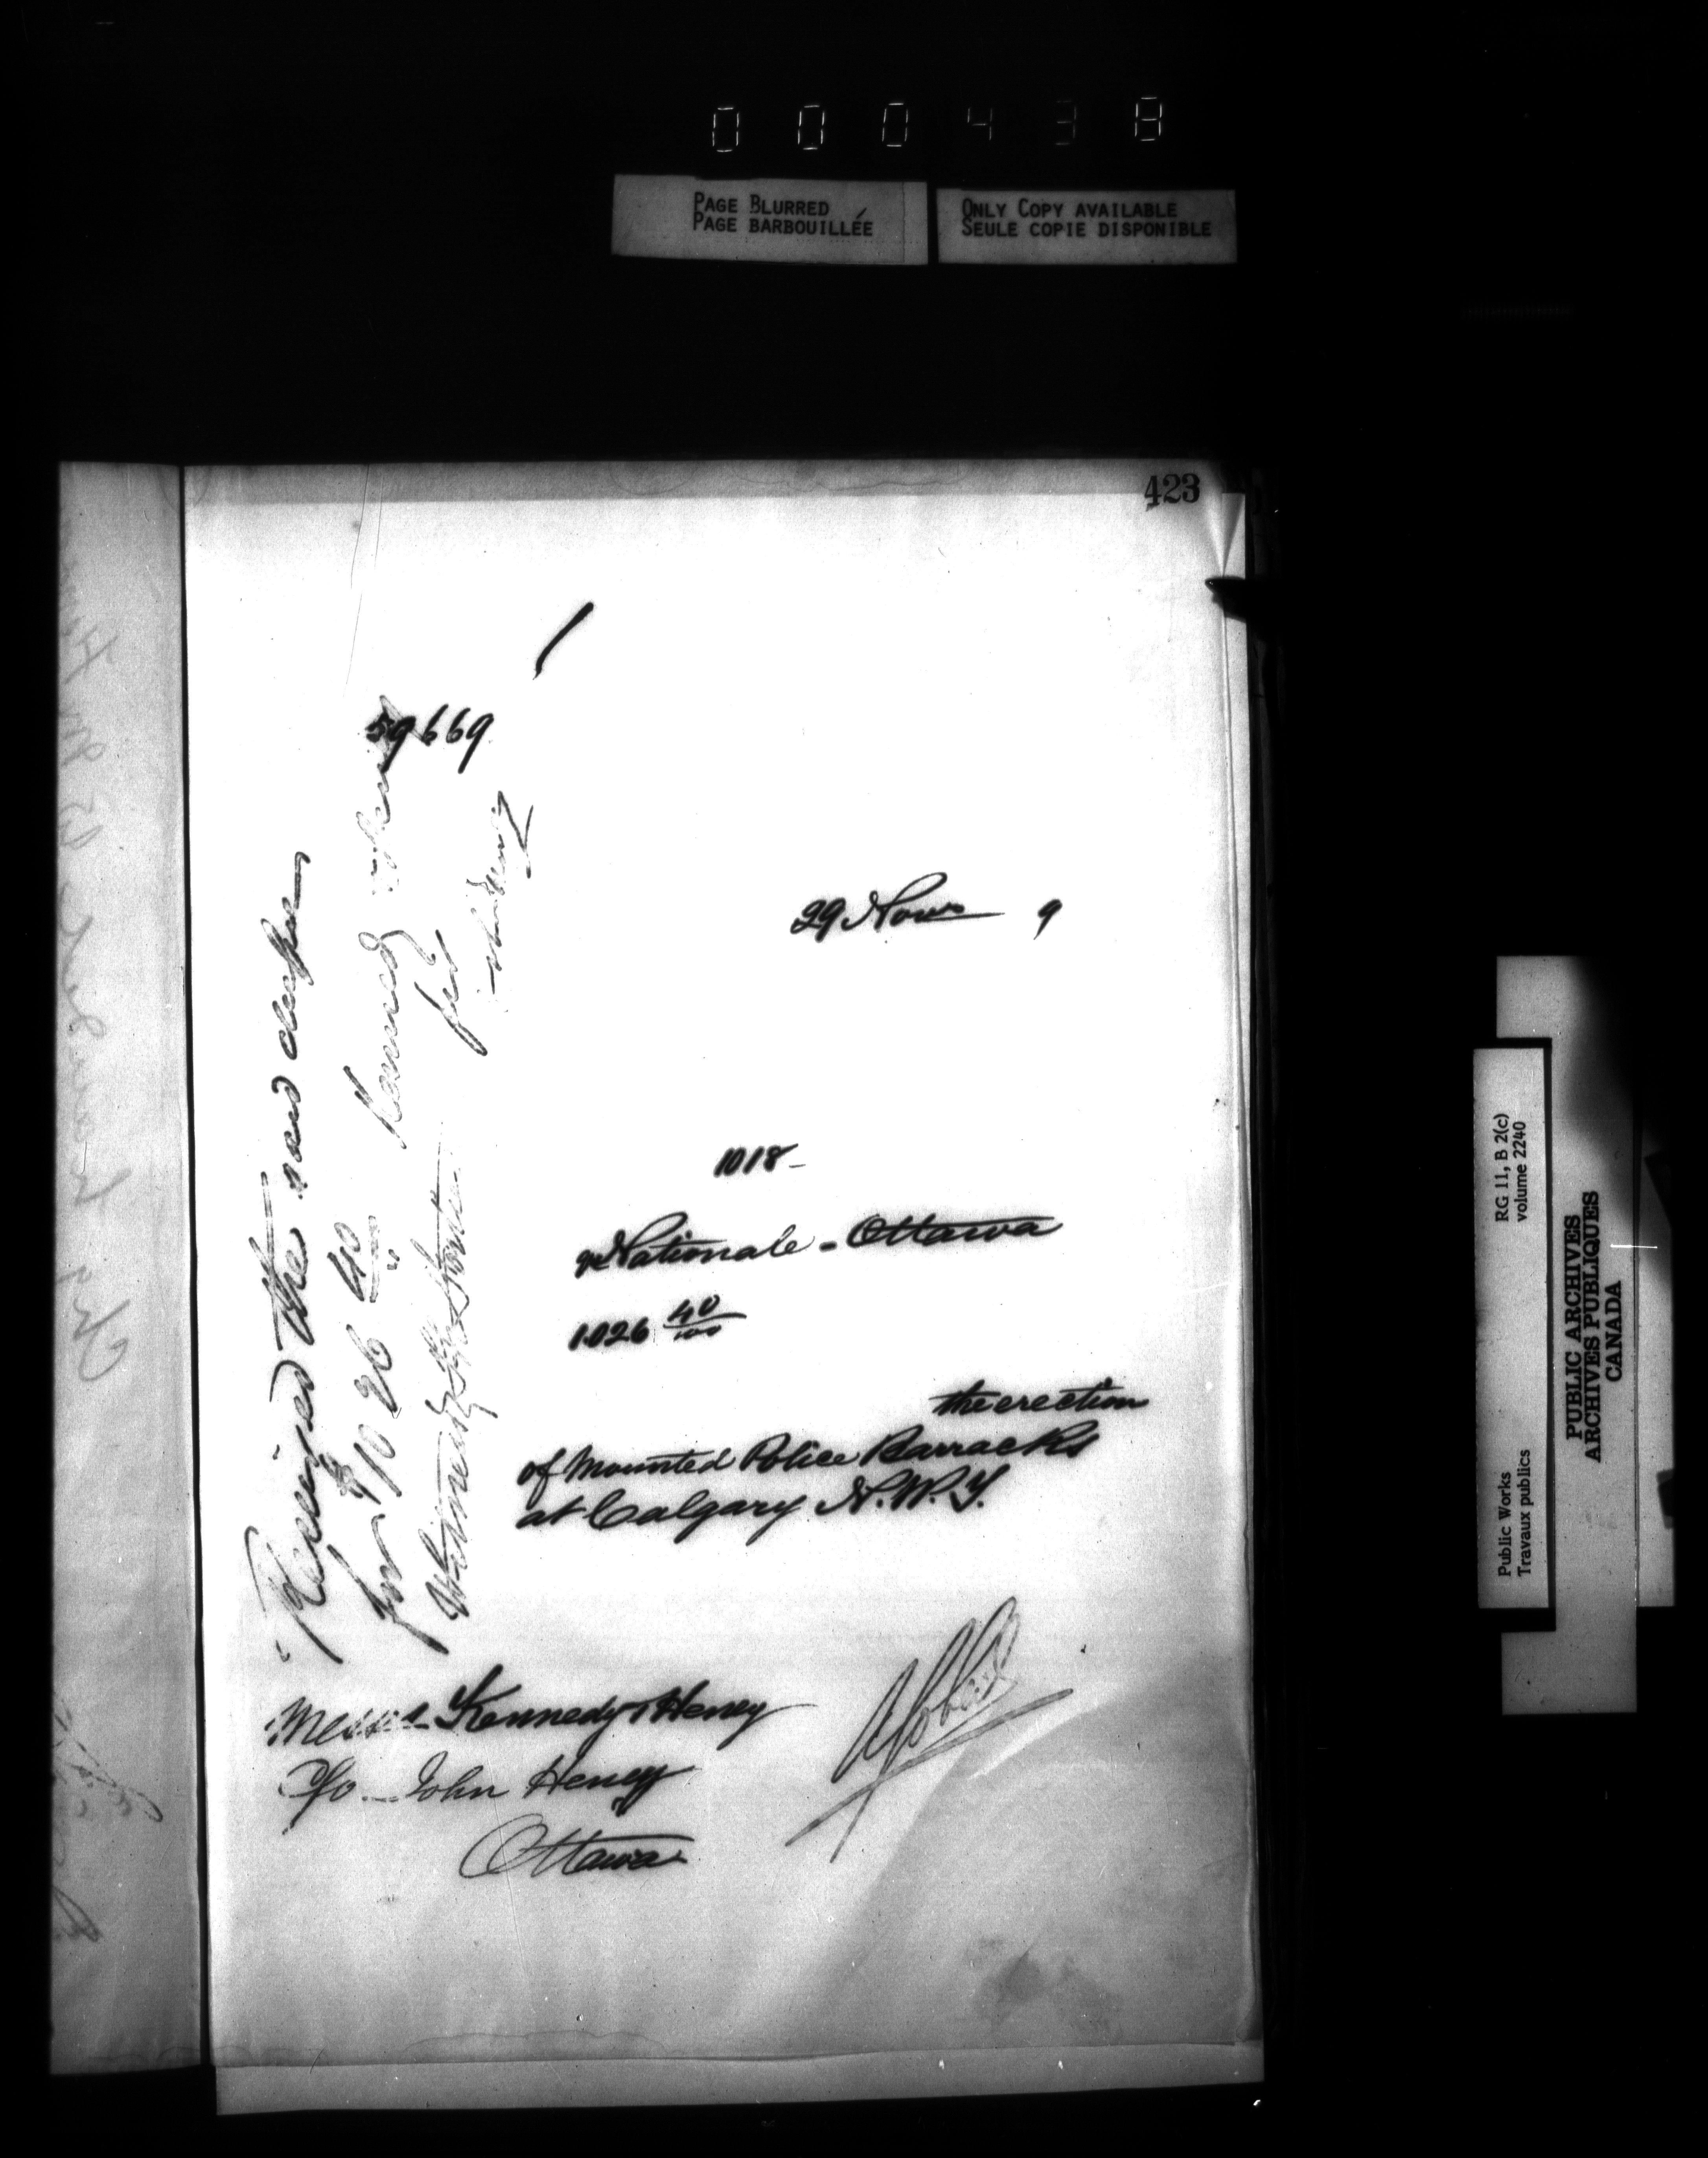 000438
PAGE BLURRED
PAGE BARBOUILLÉE
ONLY COPY AVAILABLE
SEULE COPIE DISPONIBLE
423
59669
29 Nov 9
1018-
Nationale - Ottawa
1.026 40/100
the erection
of Mounted Police Barracks
at Calgary N.W.T.
Messrs Kennedy & Heney
C/o John Heney
Ottawa
Received the said cheque
for $1026 40/100 Kennedy Heney
Witness per
John Heney
RG 11, B 2(c)
volume 2240
Public Works
Travaux publics
PUBLIC ARCHIVES
ARCHIVES PUBLIQUES
CANADA